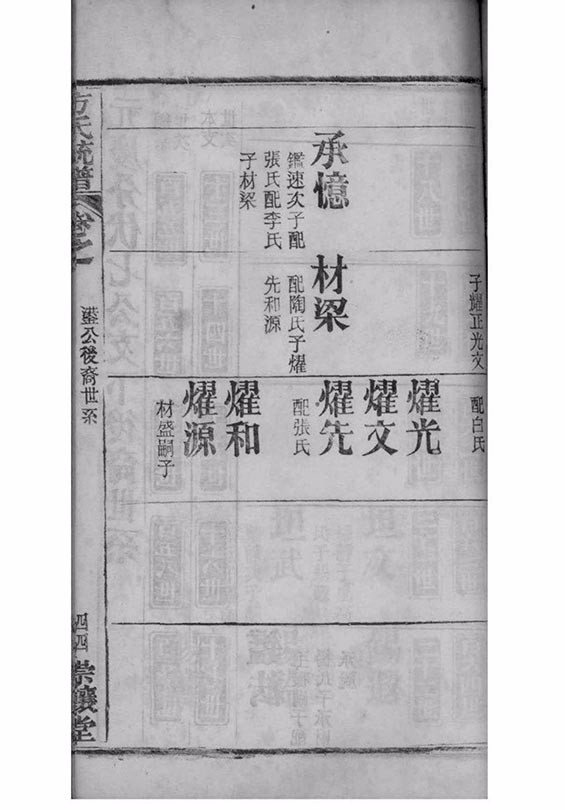 承憶
鑑速次子配
張氏配李氏
子材梁
子燿正光文
材梁
配陶氏子燿
先和源
配白氏
燿光
燿文
燿先
配張氏
燿和
燿源
材盛嗣子
方氏統譜
卷之一
公後裔世系
四四
崇讓堂